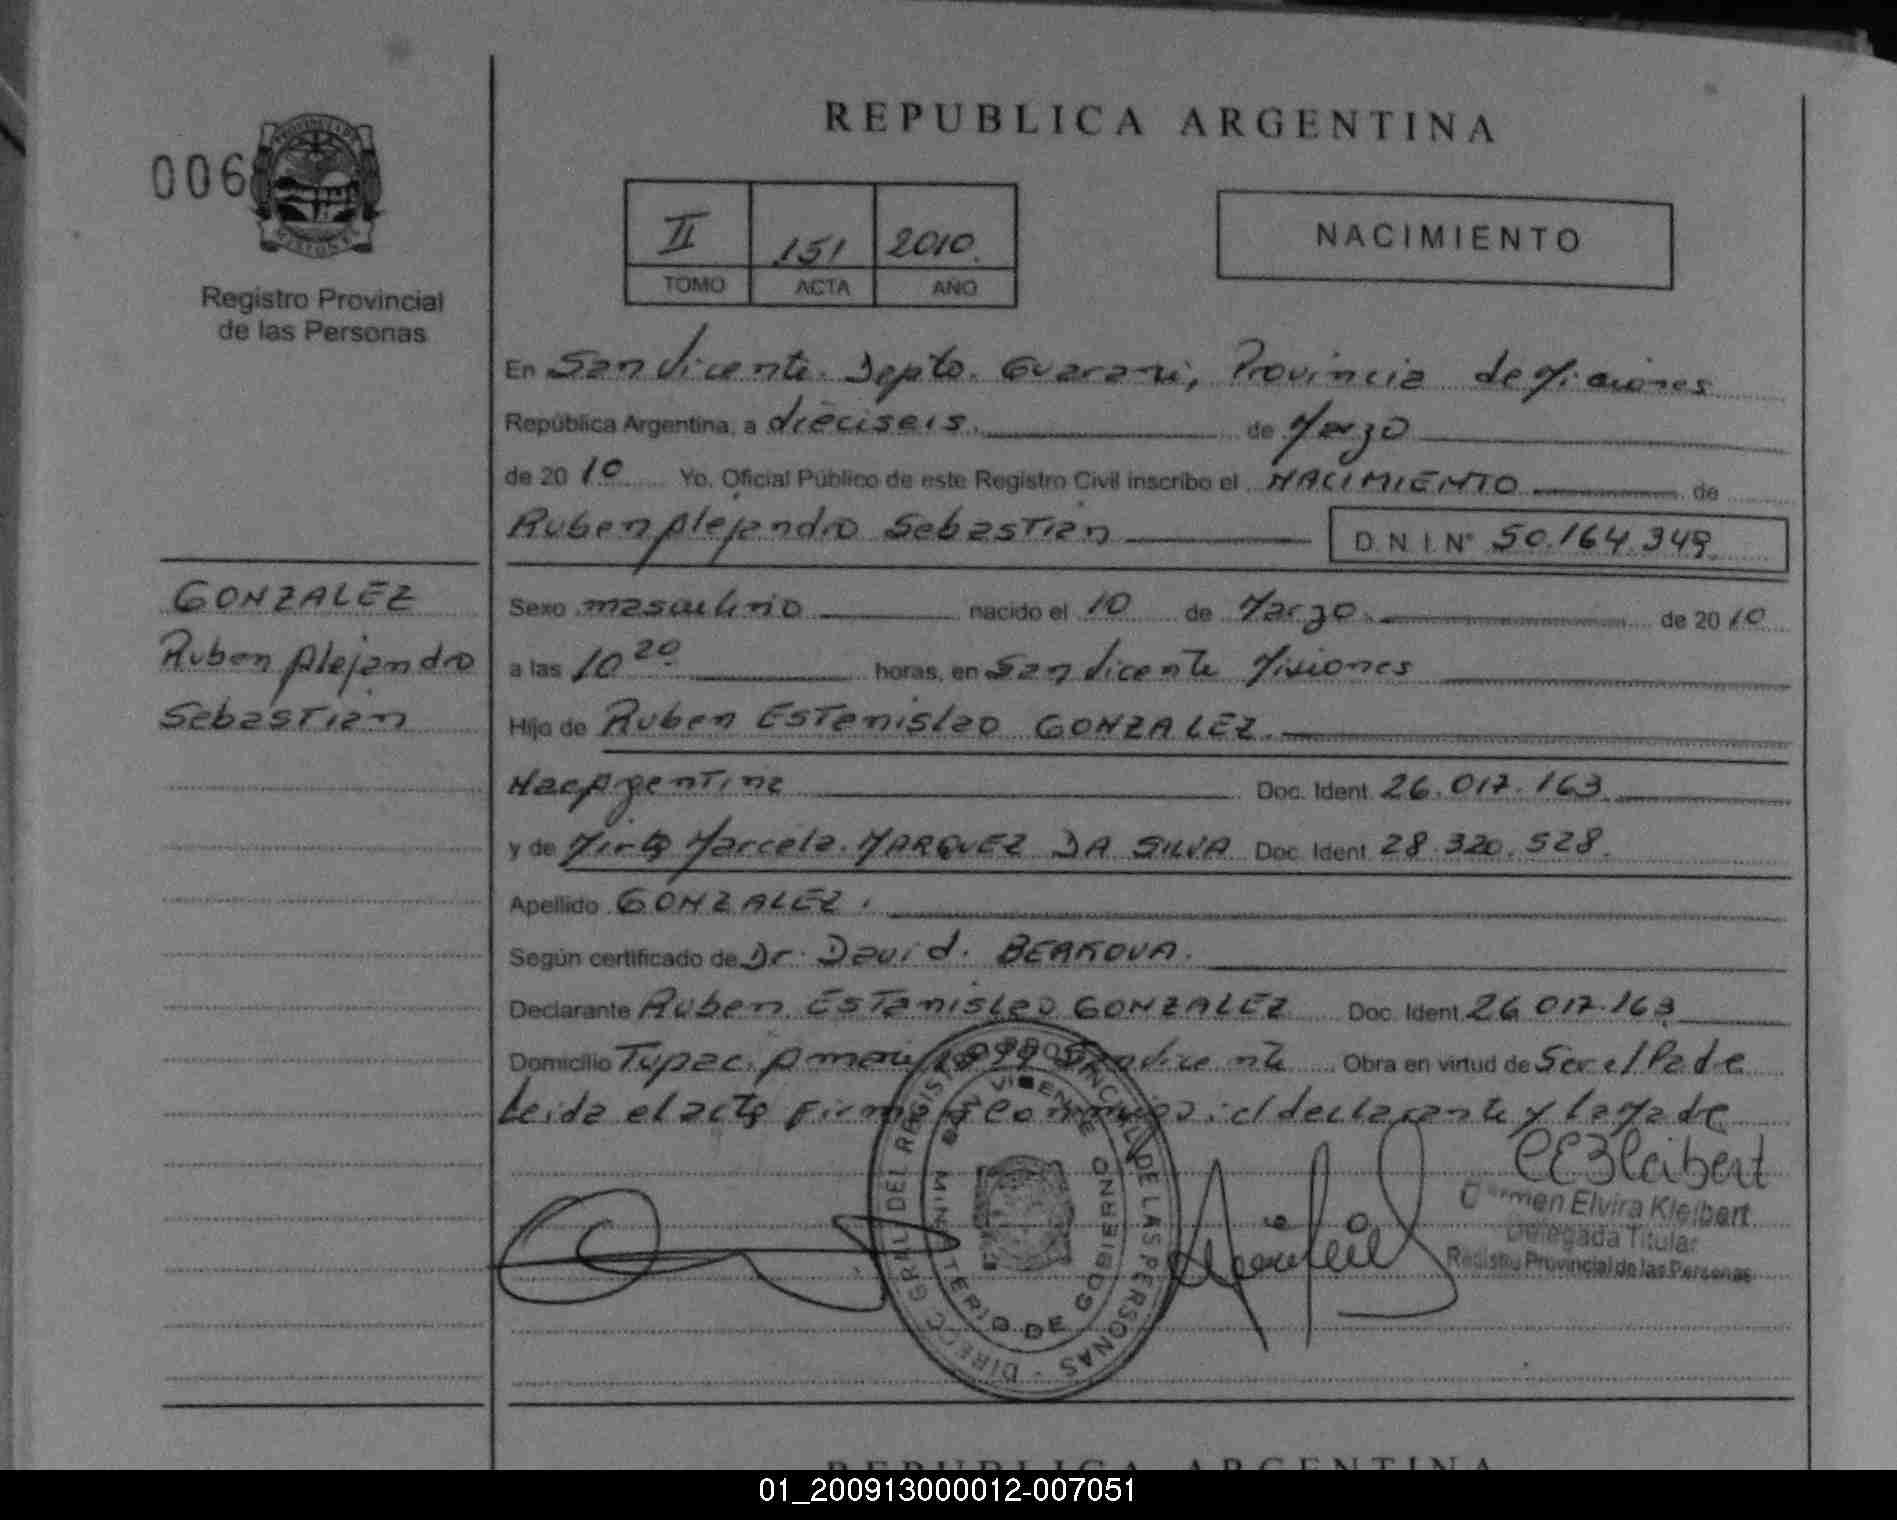 REPUBLICA ARGENTINA
006
PROVINCIA DE MISIONES
Registro Provincial
de las Personas
II 151 2010.
TOMO ACTA AÑO
NACIMIENTO
En San Vicente. Depto. Guarani, Provincia de Misiones
República Argentina, a dieciseis. de Marzo
de 2010 Yo, Oficial Público de este Registro Civil inscribo el NACIMIENTO de
Ruben Alejandro Sebastian D.N.I.Nº 50.164.349.
GONZALEZ
Ruben Alejandro
Sebastian
Sexo masculino nacido el 10 de Marzo. de 2010
a las 10 20 horas, en San Vicente Misiones
Hijo de Ruben Estanislao GONZALEZ.
Nac Argentina Doc. Ident. 26.017.163.
y de Mirta Marcela. MARQUEZ DA SILVA Doc. Ident. 28.320.528.
Apellido GONZALEZ.
Según certificado de Dr. David.
Declarante Ruben Estanislao GONZALEZ Doc. Ident. 26 017.163
Domicilio Tupac. Amaru San Vicente Obra en virtud de Ser el Padre
Leida el acta Firma Conmigo: el declarante y la Madre
DIRECC. GRAL. DEL REGISTRO PROVINCIAL DE LAS PERSONAS -
SAN VICENTE
MINISTERIO DE GOBIERNO
CEKleibert
Carmen Elvira Kleibert
Delegada Titular
Registro Provincial de las Personas
REPUBLICA ARGENTINA
01_200913000012-007051